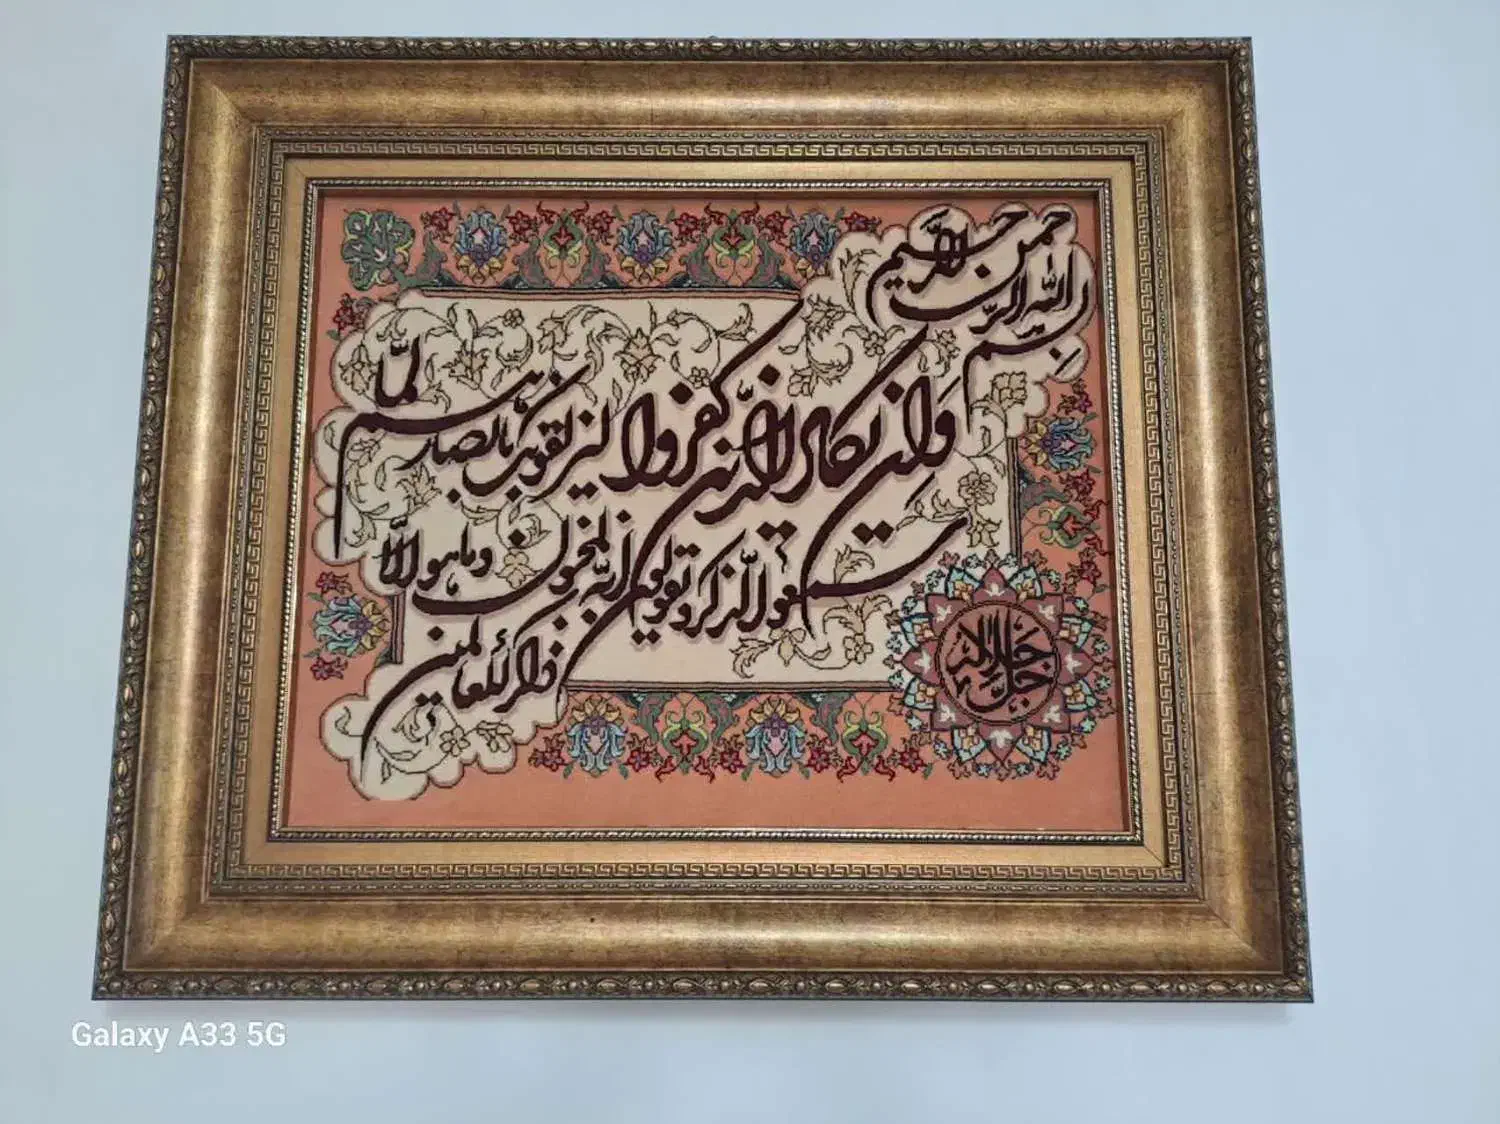 بسم الله الرحمن الرحیم
وَاِن یکاد الذین کفروا لیزلقونک بابصارهم لمّا
سمعوا الذکر و یقولون انه لمجنون و ما هو الّا
ذکر للعالمین
جَلَّ جلاله
Galaxy A33 5G